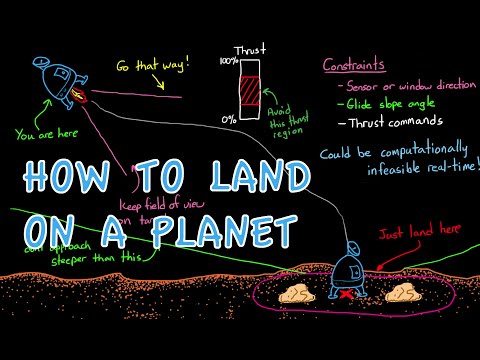 Go that way!
Thrust
100%
0%
Avoid
this thrust
region
Constraints
- Sensor or window direction
- Glide slope angle
- Thrust commands
Could be computationally
infeasible real-time!
You are here
HOW TO LAND
ON A PLANET
Keep field of view
on
approach
steeper than this
Just land here